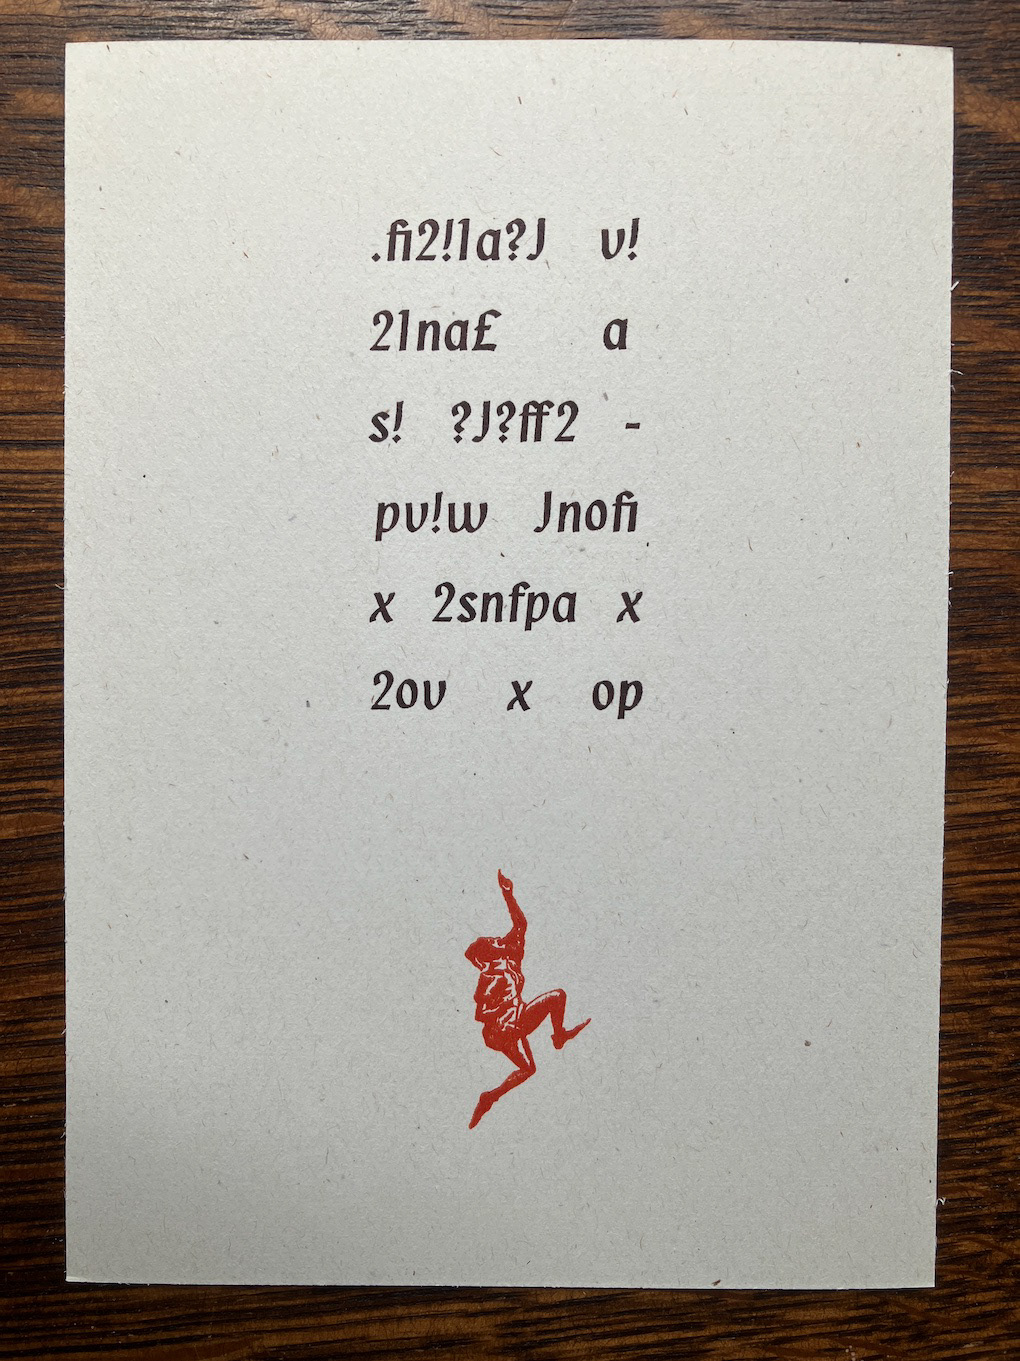 .fi2!1a?J v!
21na£ a
s! ?J?ff2 -
pv!w Jnofi
x 2snfpa x
2ov x op